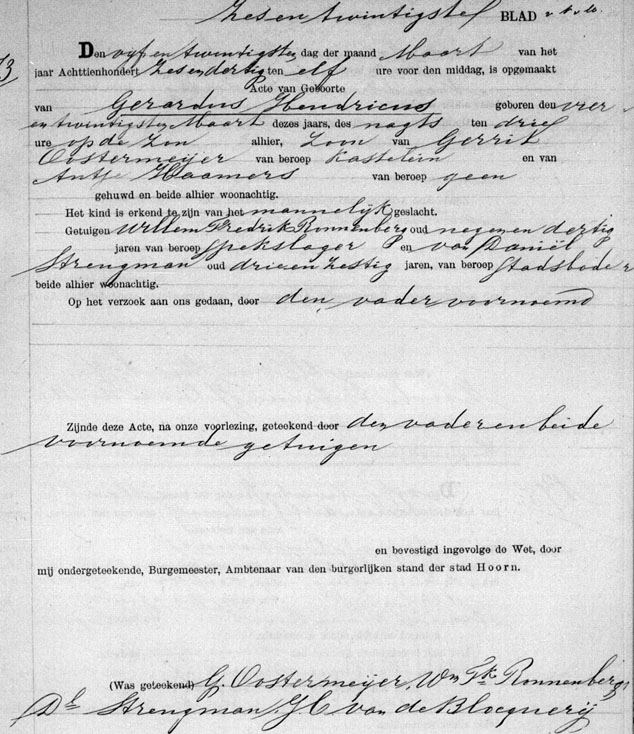 Zes en twintigste BLAD
Den vyf en twintigsten dag der maand Maart van het
jaar Achttienhonderd Zes en dertig ten elf ure voor den middag, is opgemaakt
Acte van Geboorte
van Gerardus Hendricus geboren den vier
en twintigsten Maart dezes jaars, des nagts ten drie
ure op de Zon alhier, Zoon van Gerrit
Oostermeijer van beroep Kastelein en van
Antje Haamers van beroep geen
gehuwd en beide alhier woonachtig.
Het kind is erkend te zijn van het mannelijk geslacht.
Getuigen Willem Fredrik Ronnenberg oud neg en dertig
jaren van beroep Spekslager en van Daniël
Strengman oud drie en zestig jaren, van beroep Stadsbode
beide alhier woonachtig.
Op het verzoek aan ons gedaan, door den vader voornoemd
Zijnde deze Acte, na onze voorlezing, geteekend door den vader en beide
voornoemde getuigen
en bevestigd ingevolge de Wet, door
mij ondergeteekende, Burgemeester, Ambtenaar van den burgerlijken stand der stad Hoorn.
(Was geteekend) G. Oostermeijer Wm Fk Ronnenberg
Dl Strengman J.C. van de Blocquerij